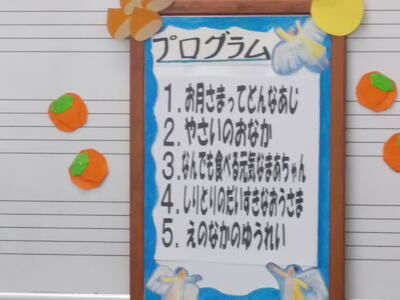 プログラム
1. お月さまってどんなあじ
2. やさいのおなか
3. なんでも食べる元気なまあちゃん
4. しりとりのだいすきなおうさま
5. えのなかのゆうれい